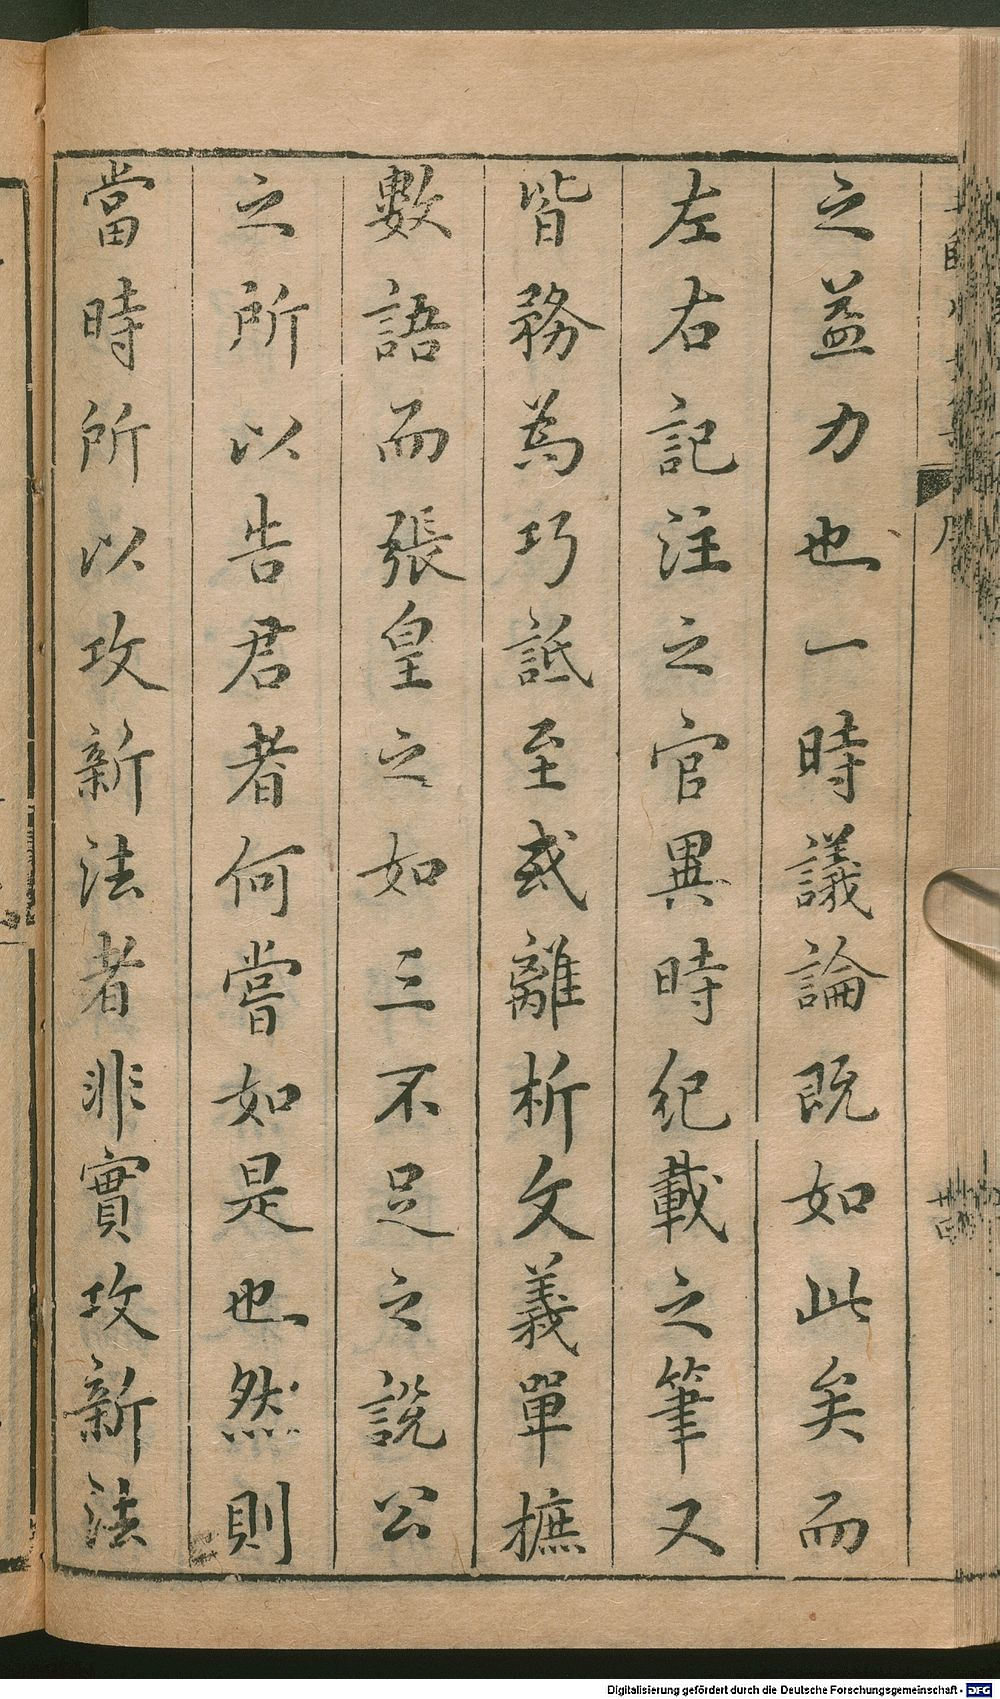 之益力也一時議論既如此矣而
左右記注之官異時紀載之筆又
皆務為巧詆至或離析文義單摭
數語而張皇之如三不足之說公
之所以告君者何嘗如是也然則
當時所以攻新法者非實攻新法
序
Digitalisierung gefördert durch die Deutsche Forschungsgemeinschaft - DFG